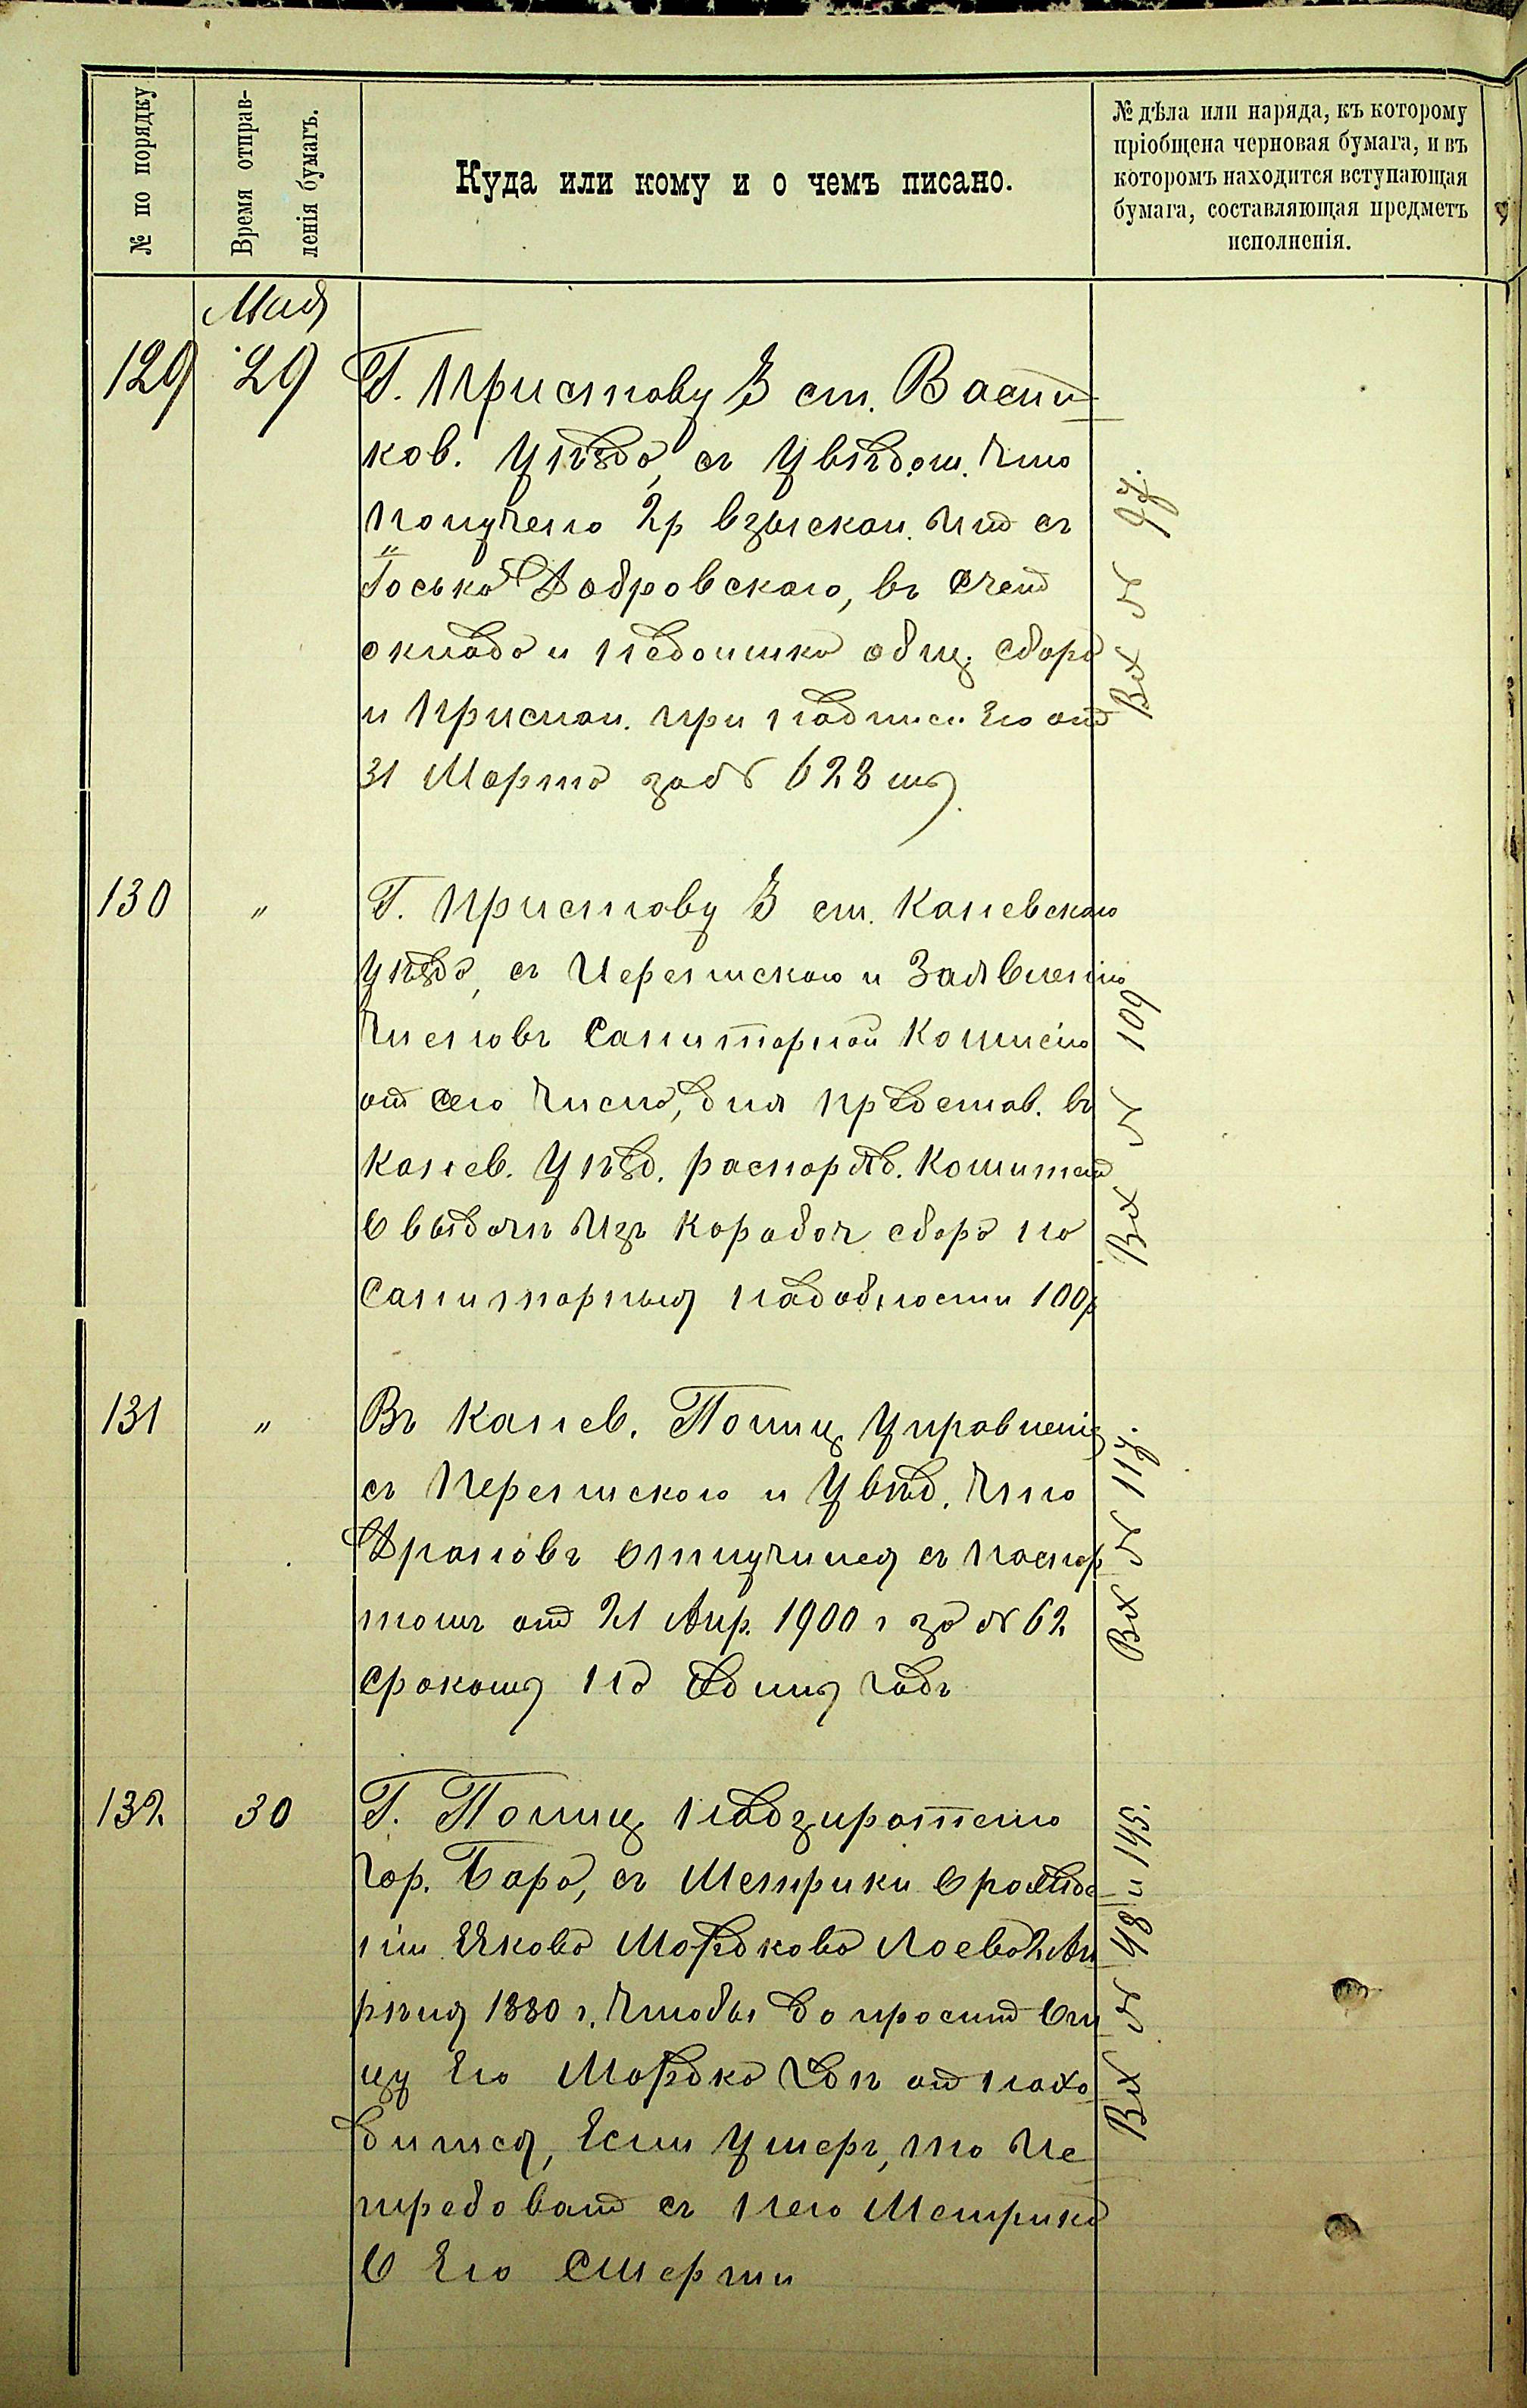 № по порядку
Время отправ-
ленія бумагъ.
Куда или кому и о чемъ писано.
№ дѣла или наряда, къ которому
пріобщена черновая бумага, и въ
которомъ находится вступающая
бумага, составляющая предметъ
исполненія.
Мая
129 29 Г. Приставу 3 ст. Васил
ков. уѣзда, съ увѣдом. что
получено 2 р взыскан. им съ
Іоська Добровскаго, въ счет
оклада и недоимка общ. сбора
и присман. при надписи его от
31 Марта за № 628 мъ.
Вх № 94.
130 " Г. Приставу 3 ст. Каневскаго
уѣзда, съ перепискою и заявленію
членовъ Санитарной Комисію
от сего числа, для представ. въ
Канев. уѣзд. распоряд. Комитет
о выдачѣ изъ коробоч сбора на
Санитарныя надобности 100р
Вх № 109
131 " Въ Канев. Полиц. Управленія
съ перепискою и увѣд. что
Драновъ отлучился съ паспор
томъ от 21 Апр. 1900 г за № 62
срокомъ на единъ годъ
Вх № 114.
132 30 Г. Полиц. надзирателю
гор. Бара, съ метрики о рожде
ніи Якова Мордкова Лоева 2 Ап
рѣля 1880 г. чтобы допросит отц
цу его Мордко гдѣ от нахо
дится, если умеръ, то ис
требоват съ него метрика
о его смерти
Вх № 48 и 145.